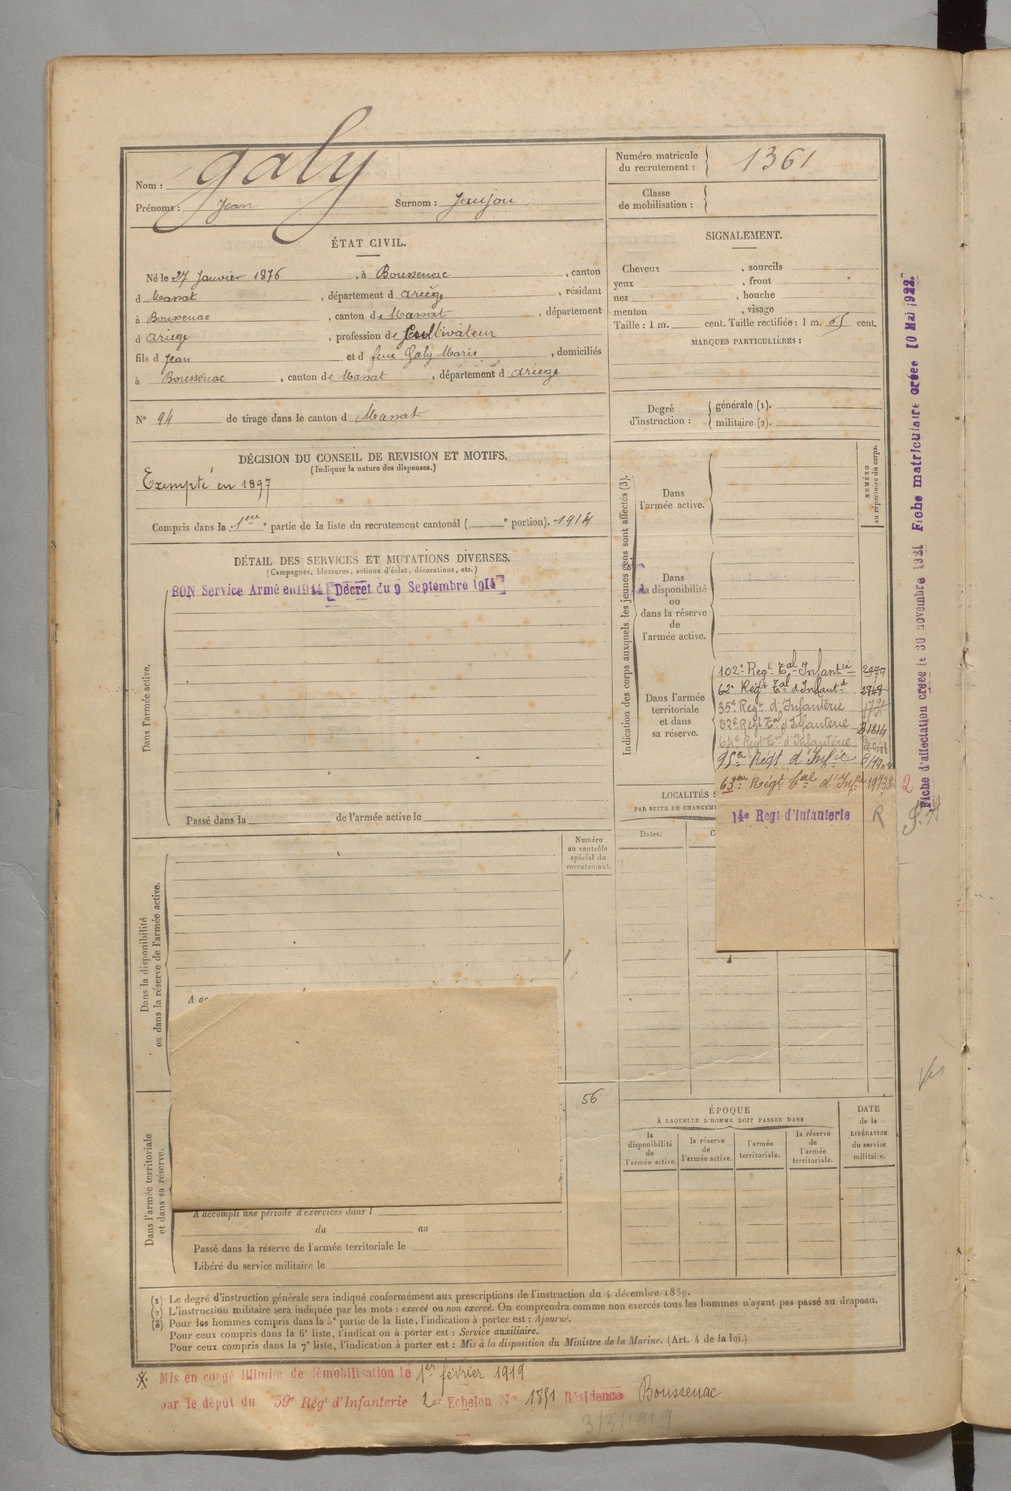 Nom : Galy
Prénoms : Jean Surnom : Jaujou
Numéro matricule du recrutement : 1361
Classe de mobilisation :
ÉTAT CIVIL.
Né le 27 Janvier 1876, à Boussenac, canton
d Massat, département d Ariège, résidant
à Boussenac, canton de Massat, département
d Ariège, profession de Cultivateur
fils d Jean et d feue Galy Marie, domiciliés
à Boussenac, canton de Massat, département d Ariège
N° 94 de tirage dans le canton d Massat
SIGNALEMENT.
Cheveux , sourcils
yeux , front
nez , bouche
menton , visage
Taille : 1 m. cent. Taille rectifiée : 1 m. 65 cent.
MARQUES PARTICULIÈRES :
Degré d'instruction : générale (1).
militaire (2).
DÉCISION DU CONSEIL DE REVISION ET MOTIFS.
(Indiquer la nature des dispenses.)
Exempté en 1897
Compris dans la 1ere partie de la liste du recrutement cantonal ( e portion). 1914
DÉTAIL DES SERVICES ET MUTATIONS DIVERSES.
(Campagnes, blessures, actions d'éclat, décorations, etc.)
BON Service Armé en 1914 [Décret du 9 Septembre 1914]
Dans l'armée active.
Passé dans la de l'armée active le
Indication des corps auxquels les jeunes gens sont affectés (3).
NUMÉRO au répertoire du corps.
Dans l'armée active.
Dans la disponibilité ou dans la réserve de l'armée active.
Dans l'armée territoriale et dans sa réserve.
102e Regt Tal Infantie
62e Regt Tal d'Infantie
35e Regt d'Infanterie
32e Regt Tal d'Infanterie 1814
64e Regt Tal d'Infanterie
Regt d'Infie
63eme Régt Tal d'Infie
14e Regt d'Infanterie R
LOCALITÉS
PAR SUITE DE CHANGEM
Dates.
Numéro au contrôle spécial du recrutement.
Dans la disponibilité ou dans la réserve de l'armée active.
56
Dans l'armée territoriale et dans sa réserve.
A accompli une période d'exercices dans l
du au
Passé dans la réserve de l'armée territoriale le
Libéré du service militaire le
ÉPOQUE
À LAQUELLE L'HOMME DOIT PASSER DANS
la disponibilité de l'armée active.
la réserve de l'armée active.
l'armée territoriale.
la réserve de l'armée territoriale.
DATE de la LIBÉRATION du service militaire.
(1) Le degré d'instruction générale sera indiqué conformément aux prescriptions de l'instruction du 4 décembre 1889.
(2) L'instruction militaire sera indiquée par les mots : exercé ou non exercé. On comprendra comme non exercés tous les hommes n'ayant pas passé au drapeau.
(3) Pour les hommes compris dans la 5e partie de la liste, l'indication à porter est : Ajourné.
Pour ceux compris dans la 6e liste, l'indication à porter est : Service auxiliaire.
Pour ceux compris dans la 7e liste, l'indication à porter est : Mis à la disposition du Ministre de la Marine. (Art. 4 de la loi.)
Mis en congé illimité de démobilisation le 1er février 1919
par le dépot du 59e Régt d'Infanterie 2er Echelon N° 1891 Résidence Boussenac
Fiche d'affectation créée le 30 novembre 1921 Fiche matriculaire créée 10 Mai 1922
2